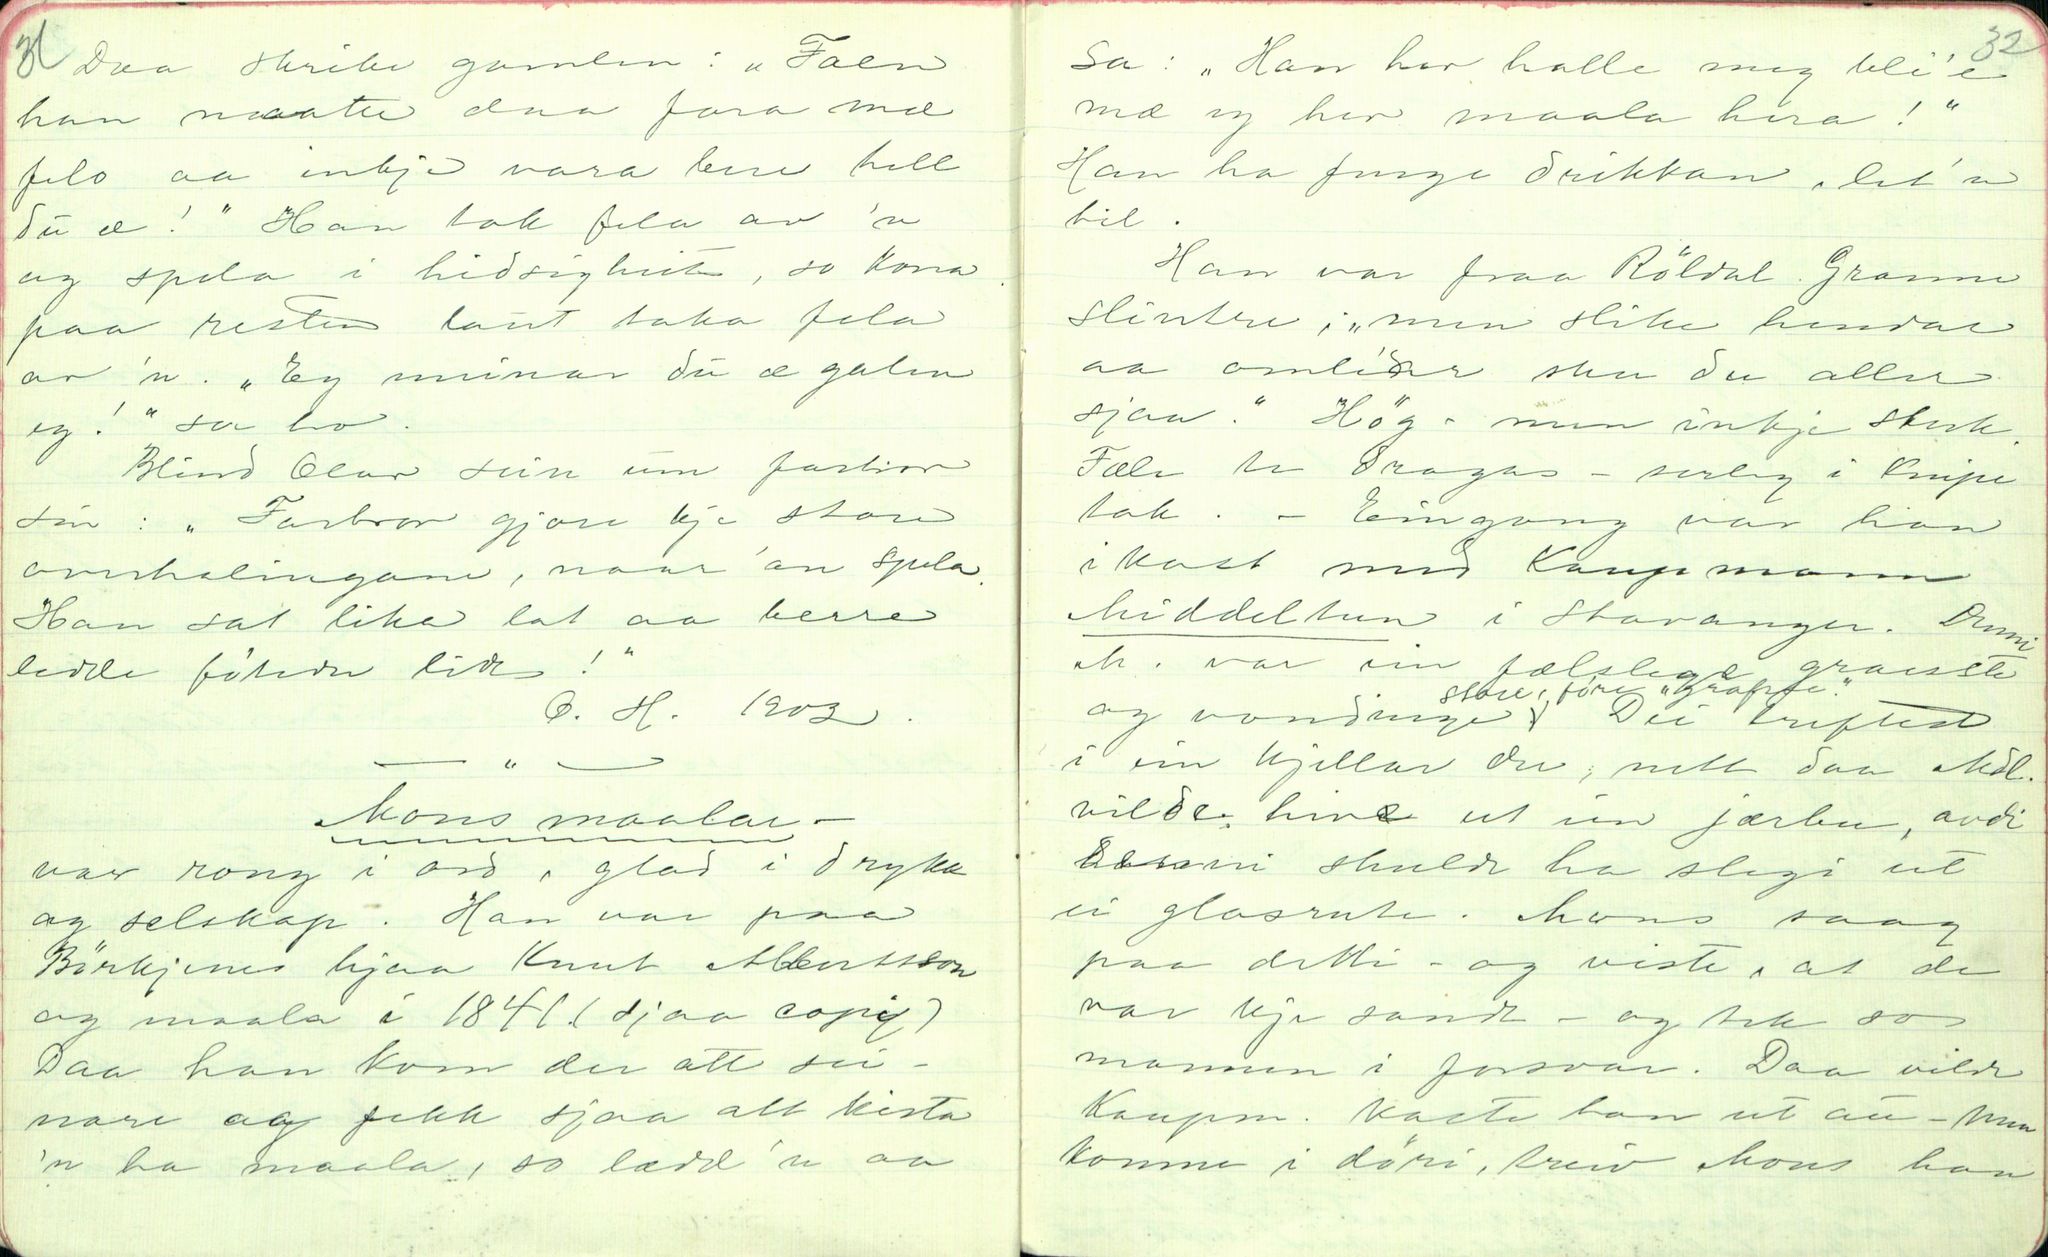 31
Daa skrike gamlen: „Faen
han maatte daa fara mæ
felo aa inkje vara bere hell
du æ!" Han tok fela av 'n
og spela i hidsigheit, so kona
paa resten laut taka fela
av 'n. „Eg meinar du æ galen
eg!" sa ho.
Blind Olav seie um farbror
sin: „Farbror gjore kje store
overhalingane, naar 'an spela.
Han sat lika lat aa berre
ledde fötedn lite!"
O. H. 1903.
— „ —
Mons maalar —
var rong i ord, glad i drykk
og selskap. Han var paa
Börkjenes hjaa Knut Albertson
og maala i 1841. (sjaa copij)
Daa han kom der att sei-
nare og fekk sjaa att kista
'n ha maala, so lædd 'n aa
32
sa: „Han har halle meg bli'e
mæ eg her maala hera!"
Han ha funge drikkan, let 'n
til.
Han var fraa Röldal. Granne
slintre; „men slike hendar
aa omlider ska du aller
sjaa." Hög - men inkje sterk.
Fæle te dragas - serleg i knipe
tak. - Eingong var han
i kast med Kaupmann
Middeltun i Stavanger. Denni
M. var ein fælslege graeste
og vondinge store, före „kroppe." Dei treftest
i ein kjellar der, nett daa Mdl.
vilde hive ut ein jærbu, avdi
denni skulde ha slegi ut
ei glasrute. Mons saag
paa detti - og viste, at de
var kje sandt - og tok so
mannen i forsvar. Daa vilde
Kaupm. kaste han ut au - men
komne i döri, treiv Mons han